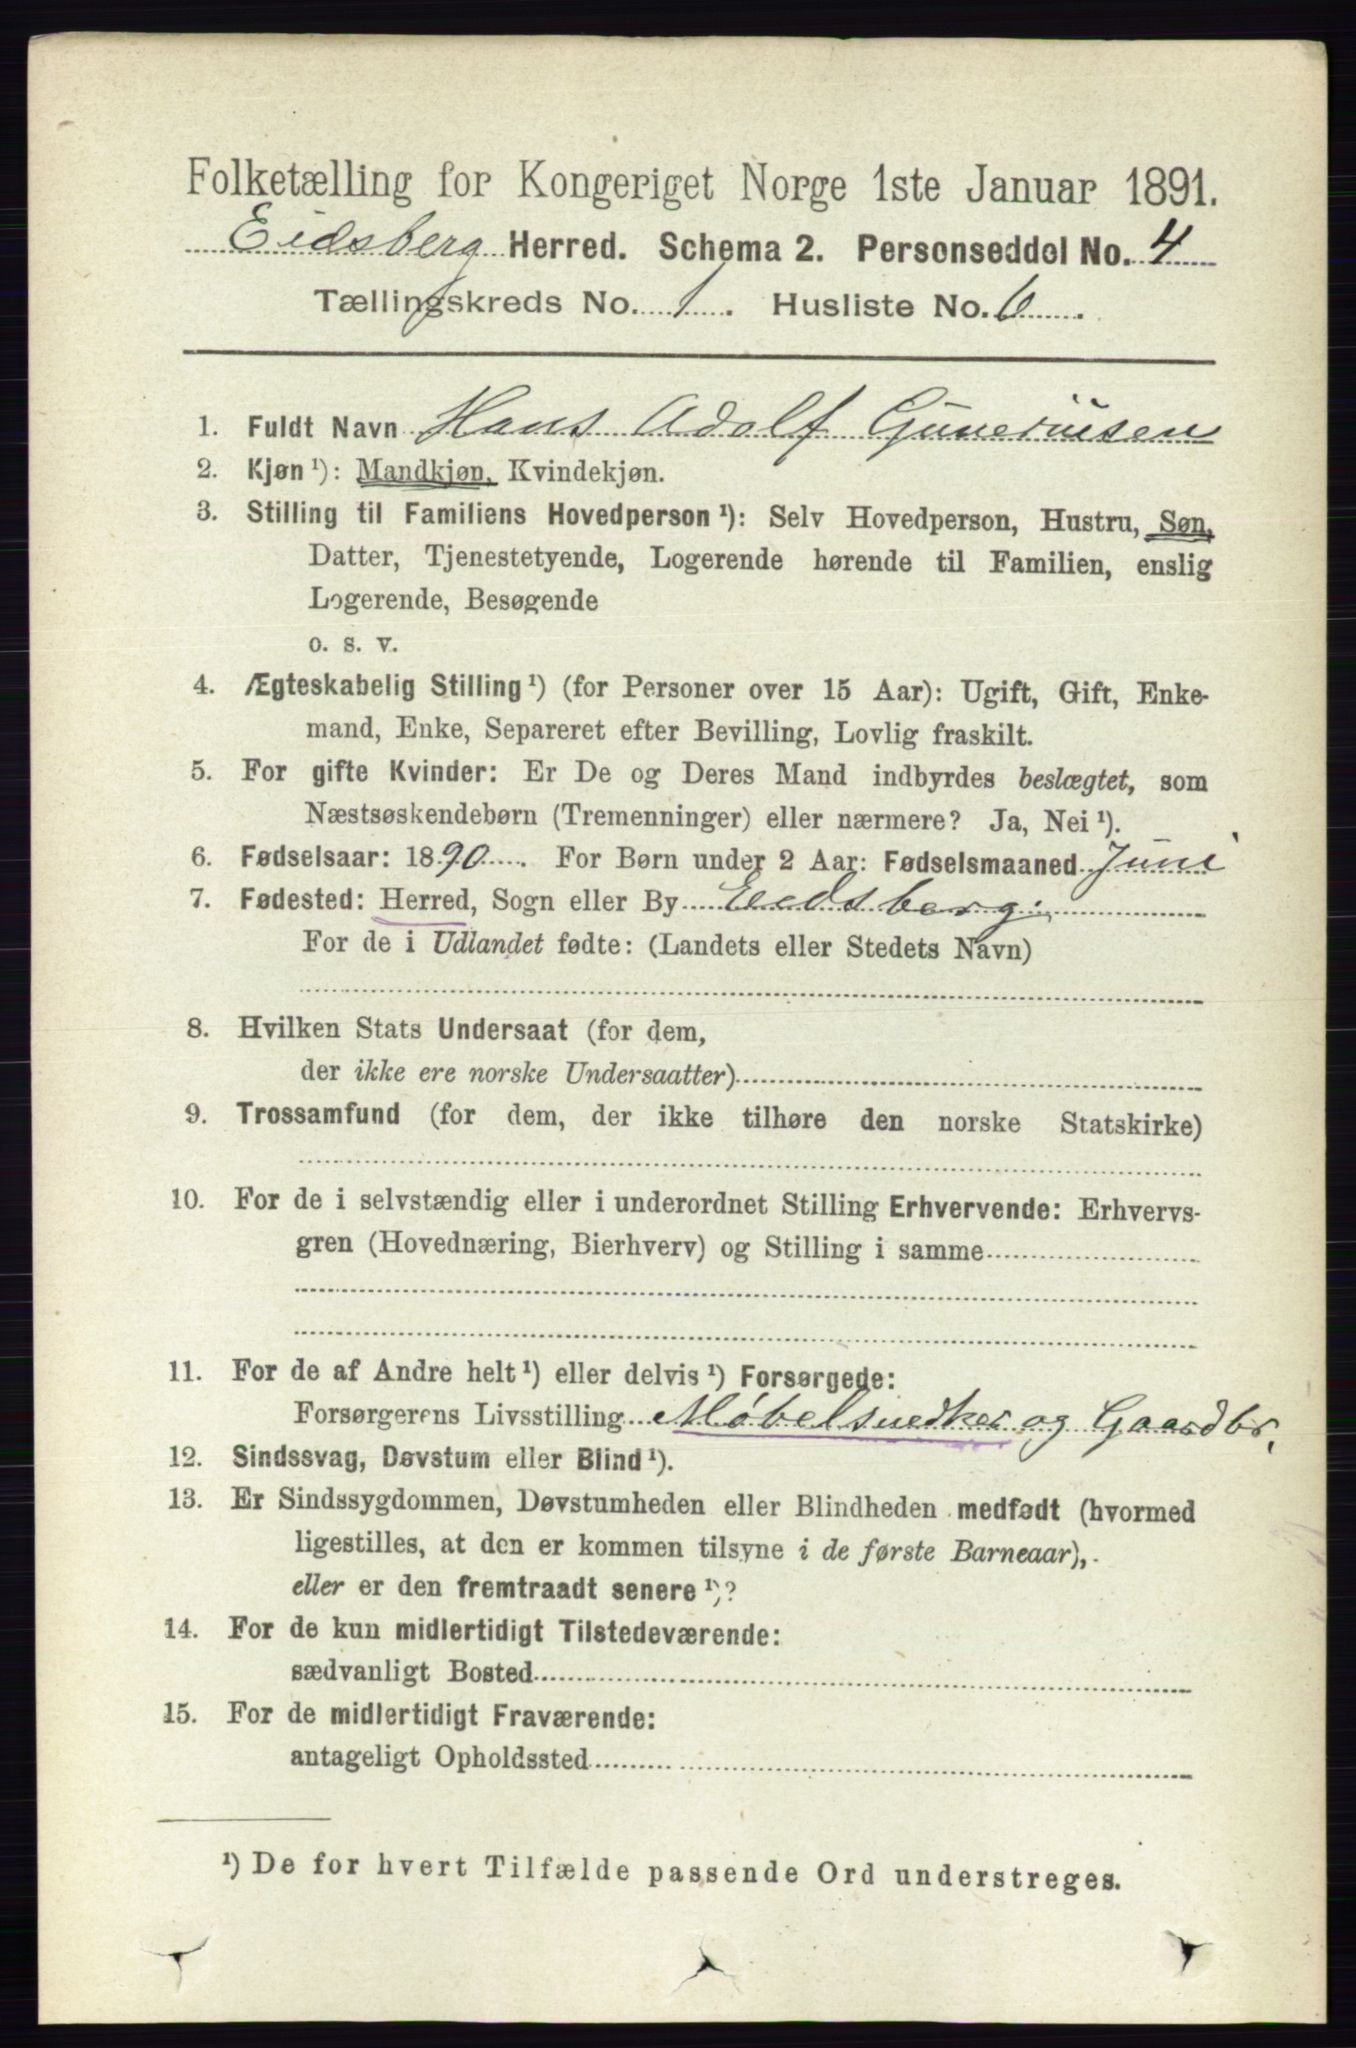 Folketælling for Kongeriget Norge 1ste Januar 1891.
Eidsberg Herred. Schema 2. Personseddel No. 4
Tællingskreds No. 1. Husliste No. 6.
1. Fuldt Navn Hans Adolf Guneriusen
2. Kjøn ¹): Mandkjøn, Kvindekjøn.
3. Stilling til Familiens Hovedperson ¹): Selv Hovedperson, Hustru, Søn,
Datter, Tjenestetyende, Logerende hørende til Familien, enslig
Logerende, Besøgende
o. s. v.
4. Ægteskabelig Stilling ¹) (for Personer over 15 Aar): Ugift, Gift, Enke-
mand, Enke, Separeret efter Bevilling, Lovlig fraskilt.
5. For gifte Kvinder: Er De og Deres Mand indbyrdes beslægtet, som
Næstsøskendebørn (Tremenninger) eller nærmere? Ja, Nei ¹).
6. Fødselsaar: 1890. For Børn under 2 Aar: Fødselsmaaned Juni
7. Fødested: Herred, Sogn eller By Eidsberg.
For de i Udlandet fødte: (Landets eller Stedets Navn)
8. Hvilken Stats Undersaat (for dem,
der ikke ere norske Undersaatter)
9. Trossamfund (for dem, der ikke tilhøre den norske Statskirke)
10. For de i selvstændig eller i underordnet Stilling Erhvervende: Erhvervs-
gren (Hovednæring, Bierhverv) og Stilling i samme
11. For de af Andre helt ¹) eller delvis ¹) Forsørgede:
Forsørgerens Livsstilling Møbelsnedker og Gaardbr.
12. Sindssvag, Døvstum eller Blind ¹).
13. Er Sindssygdommen, Døvstumheden eller Blindheden medfødt (hvormed
ligestilles, at den er kommen tilsyne i de første Barneaar),
eller er den fremtraadt senere ¹)?
14. For de kun midlertidigt Tilstedeværende:
sædvanligt Bosted
15. For de midlertidigt Fraværende:
antageligt Opholdssted
¹) De for hvert Tilfælde passende Ord understreges.